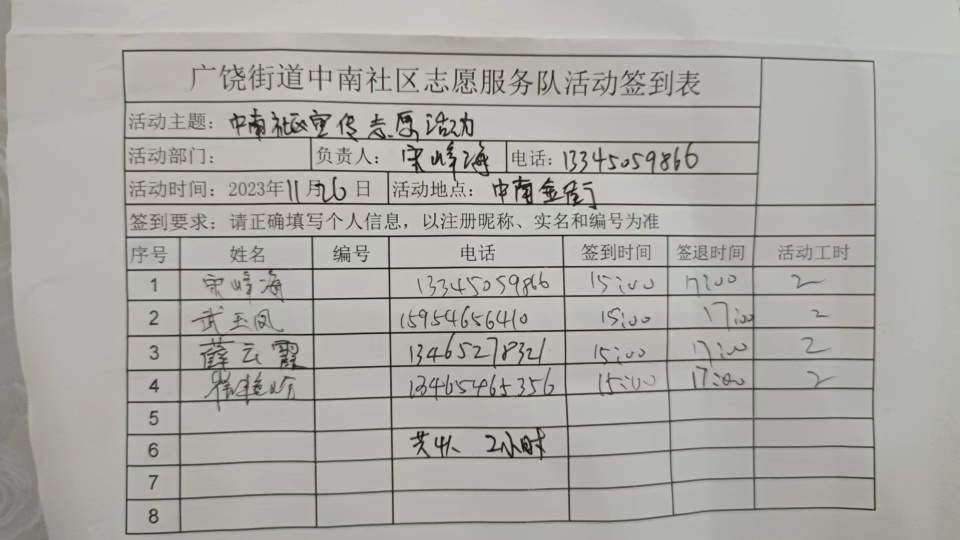 广饶街道中南社区志愿服务队活动签到表
活动主题：中南社区宣传志愿活动
活动部门： 负责人：宋峰海 电话：13345059866
活动时间：2023年11月26日 活动地点：中南金街
签到要求：请正确填写个人信息，以注册昵称、实名和编号为准
序号 姓名 编号 电话 签到时间 签退时间 活动工时
1 宋峰海 13345059866 15:00 17:00 2
2 武玉凤 15954656410 15:00 17:00 2
3 薛云霞 13465278321 15:00 17:00 2
4 13465465356 15:00 17:00 2
5
6 共4人 2小时
7
8